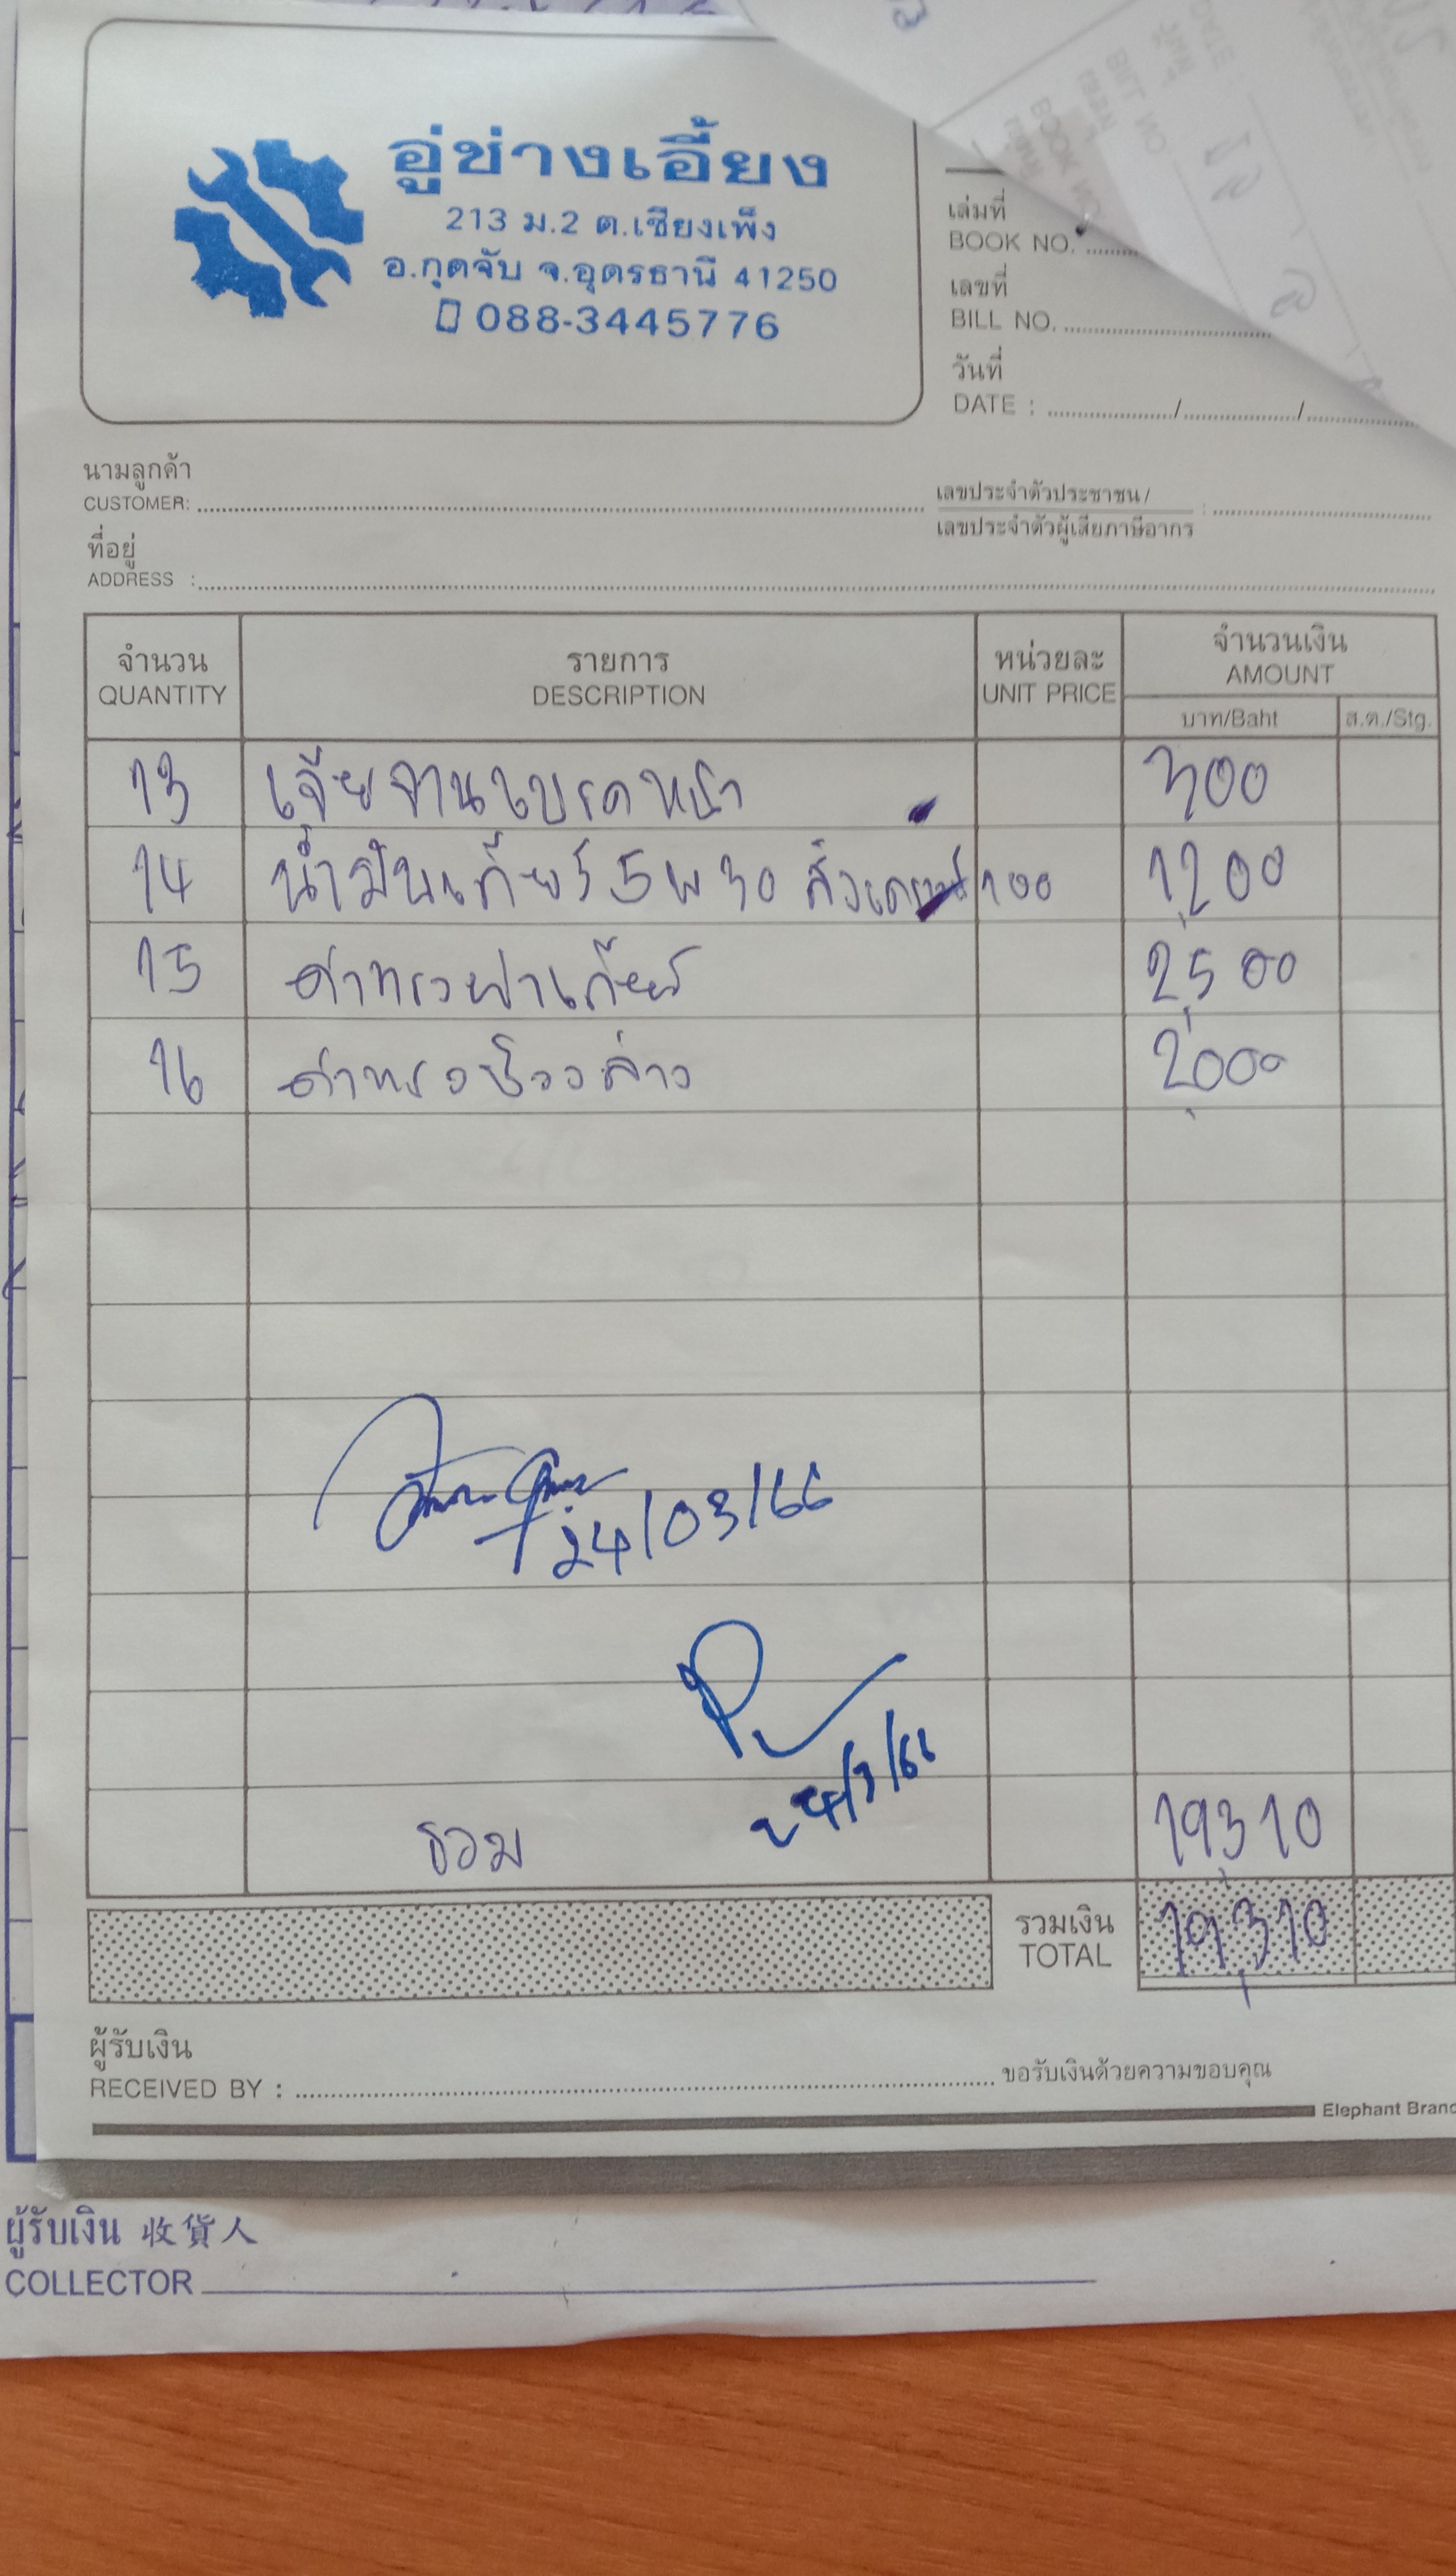 อู่ช่างเอี้ยง
213 ม.2 ต.เชียงเพ็ง
อ.กุดจับ จ.อุดรธานี 41250
088-3445776
เล่มที่
BOOK NO.
เลขที่
BILL NO.
วันที่
DATE : / /
นามลูกค้า
CUSTOMER:
เลขประจำตัวประชาชน /
เลขประจำตัวผู้เสียภาษีอากร :
ที่อยู่
ADDRESS :
จำนวน รายการ หน่วยละ จำนวนเงิน
QUANTITY DESCRIPTION UNIT PRICE AMOUNT
บาท/Baht ส.ต./Stg.
13 เจียจานเบรคหน้า 300
14 น้ำมันเกียร์ 5W30 100 1,200
15 ค่าแรงผ่าเกียร์ 2,500
16 ค่าแรงช่วงล่าง 2,000
24/03/66
24/3/66
รวม 19,310
รวมเงิน
TOTAL 19,310
ผู้รับเงิน
RECEIVED BY : ขอรับเงินด้วยความขอบคุณ
Elephant Brand
ผู้รับเงิน 收貨人
COLLECTOR